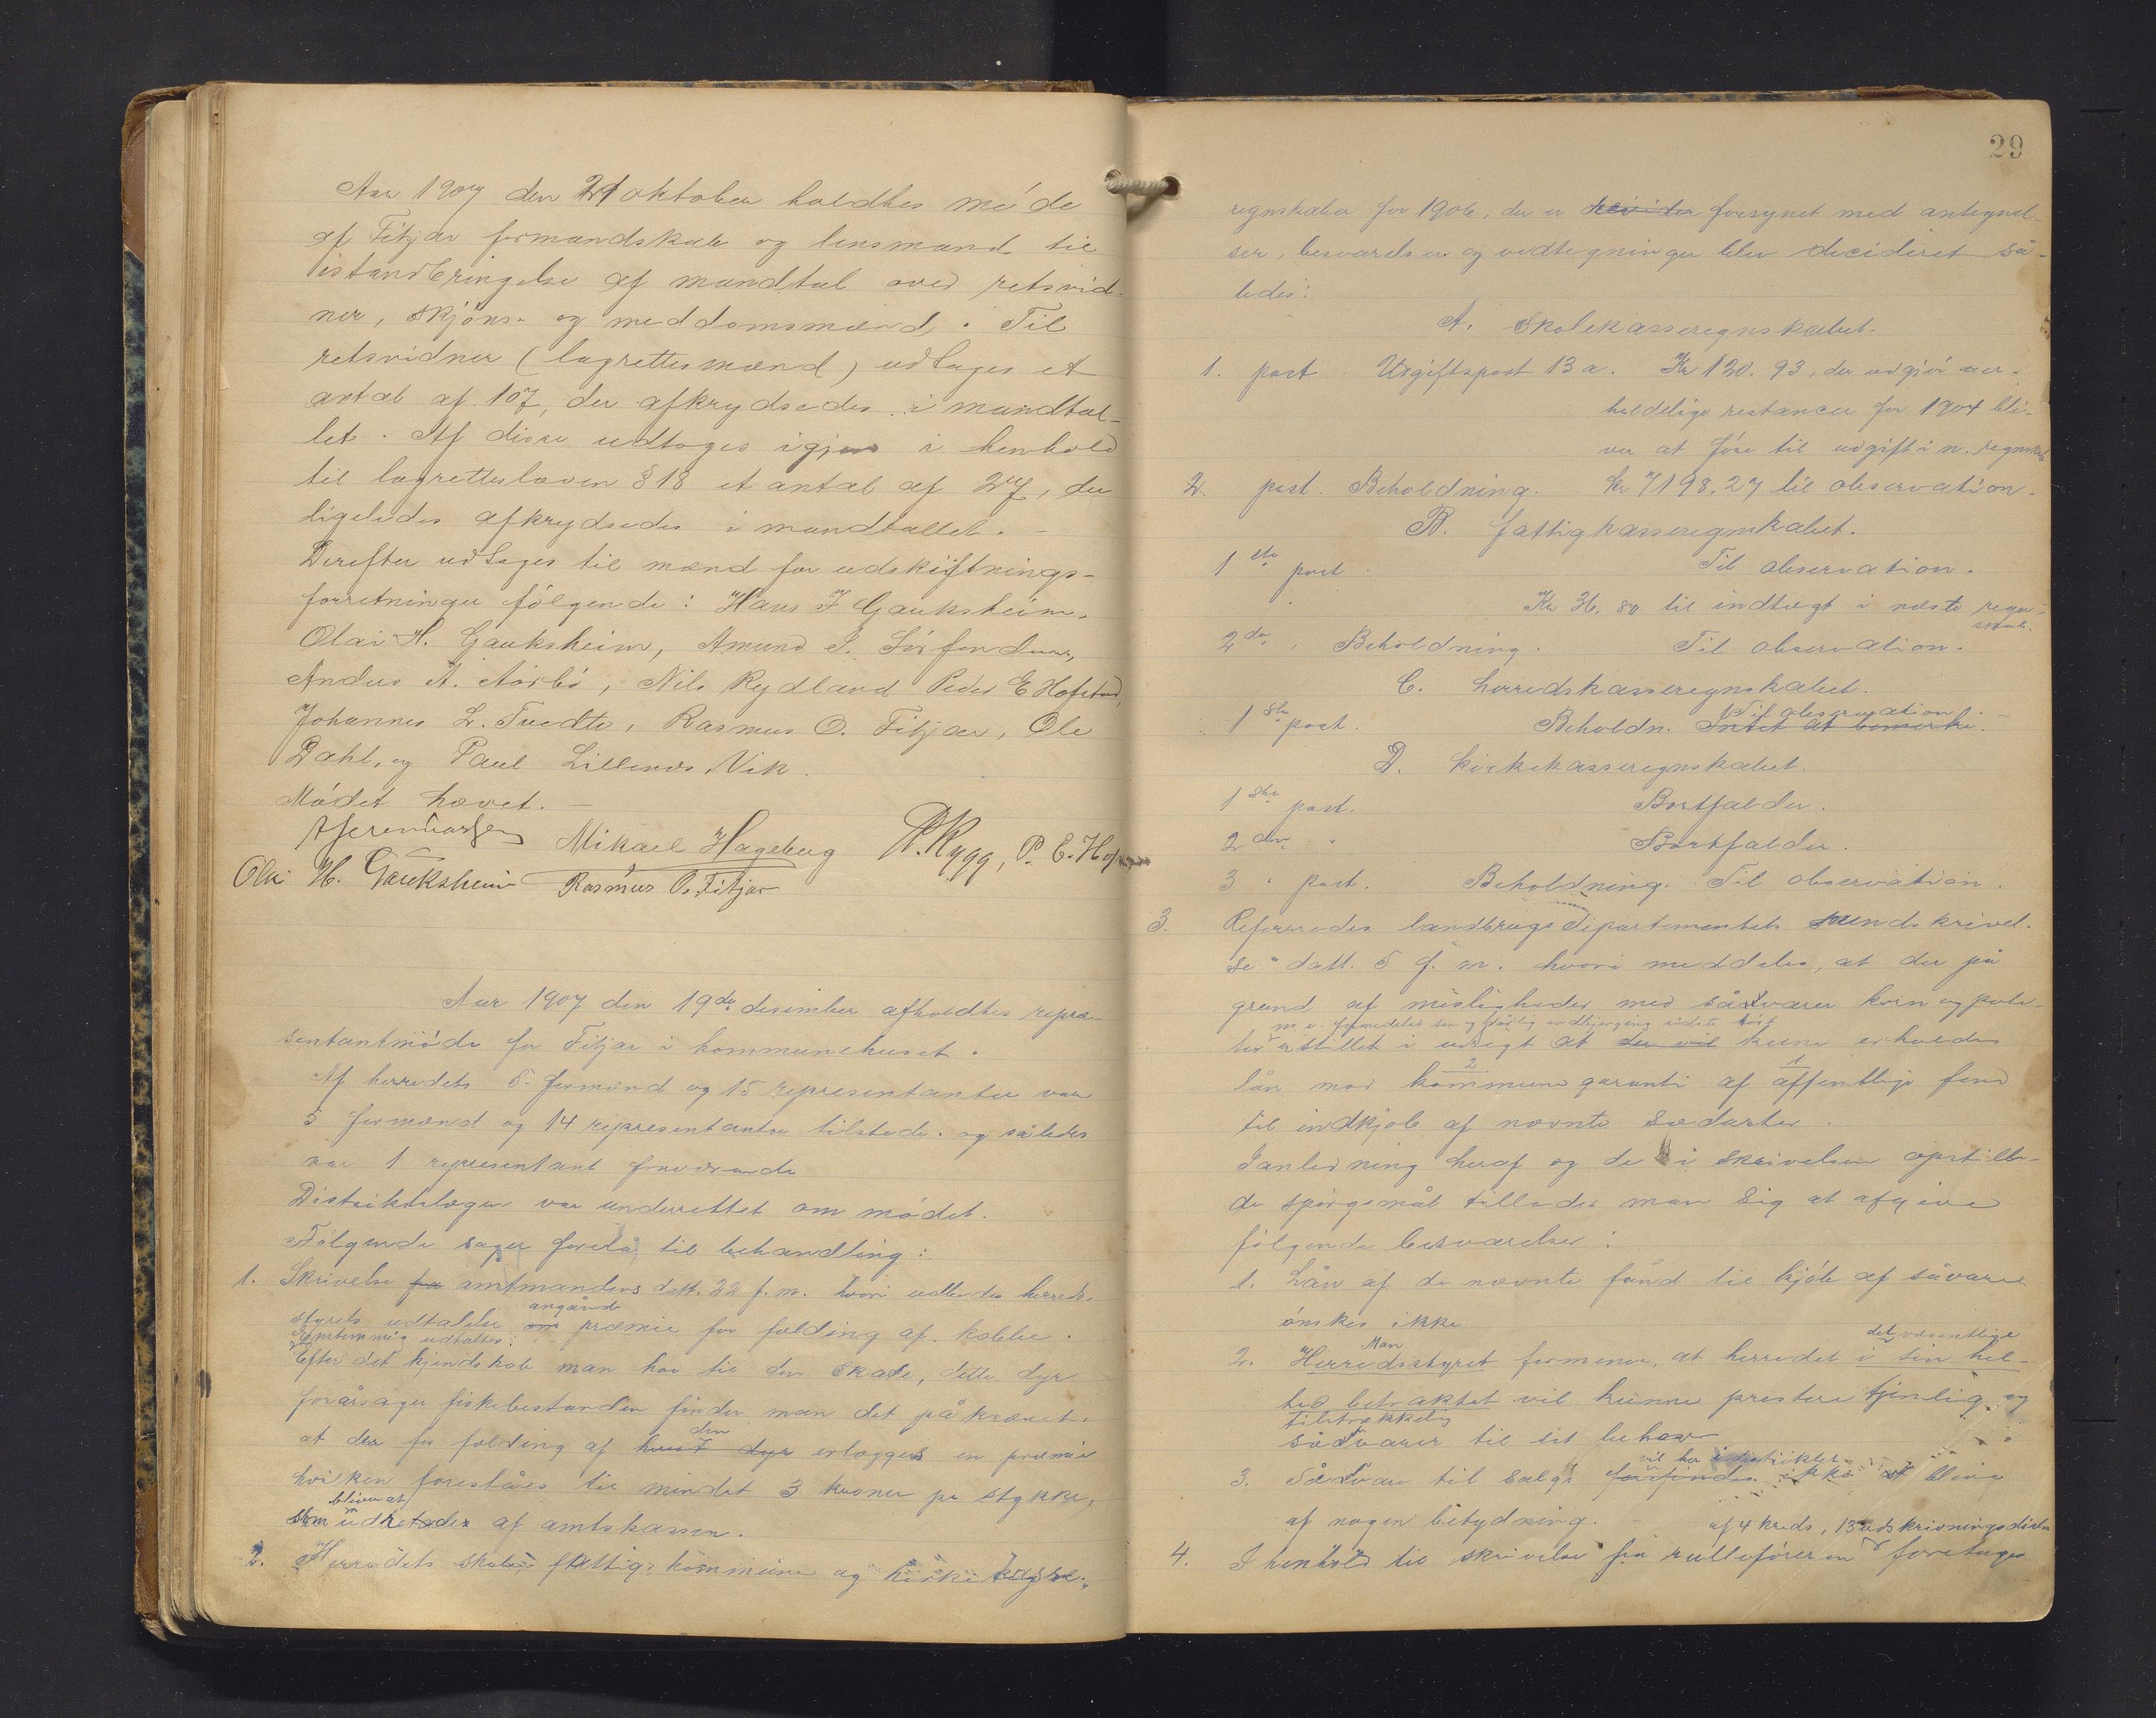 Aar 1907 den 21 oktober holdtes møde
af Fitjar formandskab og lensmand til
istandbringelse af mandtal over retsvid-
ner, skjøns- og meddomsmænd. Til
retsvidner (lagrettesmænd) udtages et
antal af 107, der afkrydsedes i mandtal-
let. Af disse udtoges igjen i henhold
til lagretteloven § 18 et antal af 27, der
ligeledes afkrydsedes i mandtallet. -
Derefter udtoges til mænd for udskiftnings-
forretninger følgende: Hans J Gauksheim,
Olai H. Gauksheim, Amund J.
Anders A. Aarbø, Nils Rydland Peder E Hofstad,
Johannes L. Tvedte, Rasmus O. Fitjar, Ole
Dahl, og Paul Lillenes Vik.
Mødet hævet. -
Mikael Hageberg P. Rygg, P. E. Hof
Olai H. Gauksheim Rasmus O. Fitjar
Aar 1907 den 19de desember afholdtes repræ-
sentantmøde for Fitjar i kommunehuset.
Af herredets 5 formænd og 15 repræsentanter var
5 formænd og 14 representanter tilstede. og således
var 1 representant fraværende
Distriktslægen var underrettet om mødet.
Følgende sager forelå til behandling:
1. Skrivelse fra amtmanden datt. 22 f. m. hvori udbedes herreds-
styrets udtalelse om angående præmie for fælding af kobbe.
Enstemmig udtaltes:
Efter det kjendskab man har til den skade, dette dyr
forårsager fiskebestanden finder man det påkrævet
at der for fælding af hvert dyr den erlægges en præmie
hvilken foreslåes til mindst 3 kroner pr stykke,
som bliver at udrede af amtskassen.
2. Herredets skole- fattig- kommune og kirkekasse-
29
regnskaber for 1906, der er revideret forsynet med antegnel-
ser, besvarelser og vedtegninger blev decideret så-
ledes:
A. Skolekasseregnskabet.
1. post. Utgiftspost 13 a. Kr 120.93, der udgjør uer-
holdelige restancer for 1904 bli-
ver at føre til udgift i n. regnskab
2. post. Beholdning. Kr 7198.27 til observation.
B. fattigkasseregnskabet.
1ste post. Til observation.
Kr 36,80 til indtægt i næste regn-
skab.
2den " Beholdning. Til observation.
C. herredskasseregnskabet.
1ste post. Beholdn. Til observation Intet at bemerke. -
D. kirkekasseregnskabet.
1ste post. Bortfalder.
2den " Bortfalder.
3 " post. Beholdning. Til observation.
3. Refereredes landbrugsdepartementets rundskrivel-
se datt. 5 f. m. hvori meddeles, at der på
grund af misligheder med såvarer korn og pote-
m. v. formedelst sen og dårlig indbjergning sidste høst
ter er stillet i udsigt at der vil kune erholdes
lån mod kommune garanti af offentlige fond
til indkjøb af nævnte sædarter.
I anledning heraf og de i skrivelsen opstille-
de spørgsmål tillades man sig at afgive
følgende besvarelser:
1. Lån af de nævnte fond til kjøb af såvarer
ønskes ikke
2. Man Herredsstyret formener, at herredet i det væsentlige sin hel-
hed betraktet vil kunne prestere tjenlig og
tilstrækkelig
sædvarer til sit behov
3. Sædvare til salgs forfindes vil her i distriktet ikke at blive
af nogen betydning. - af 4 kreds, 13 udskrivningsdistr.
4. I henhold til skrivelse fra rulleføreren foretages